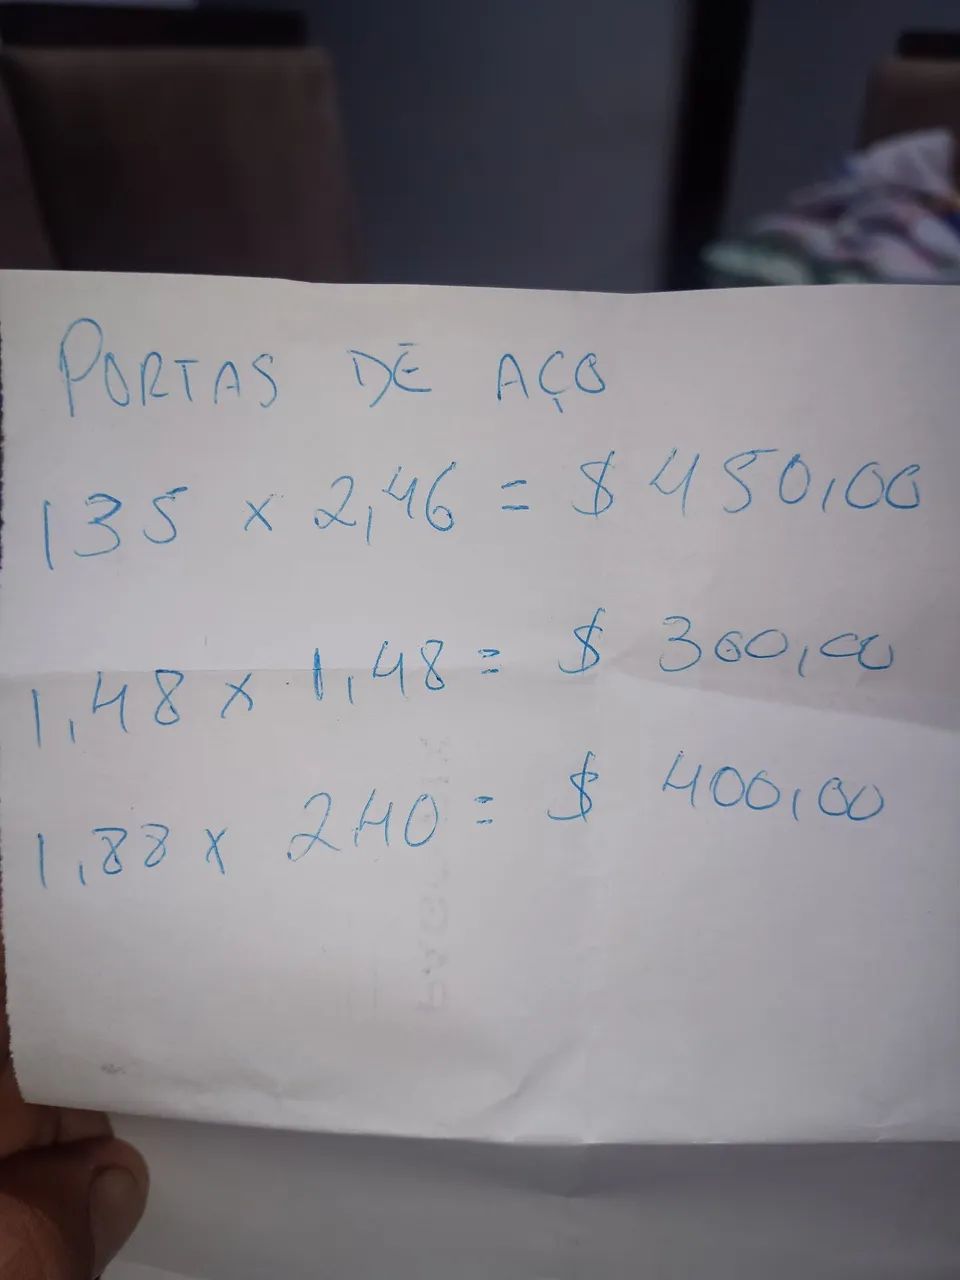 PORTAS DE AÇO
135 x 2,46 = $ 450,00
1,48 x 1,48 = $ 360,00
1,88 x 2.40 = $ 400,00